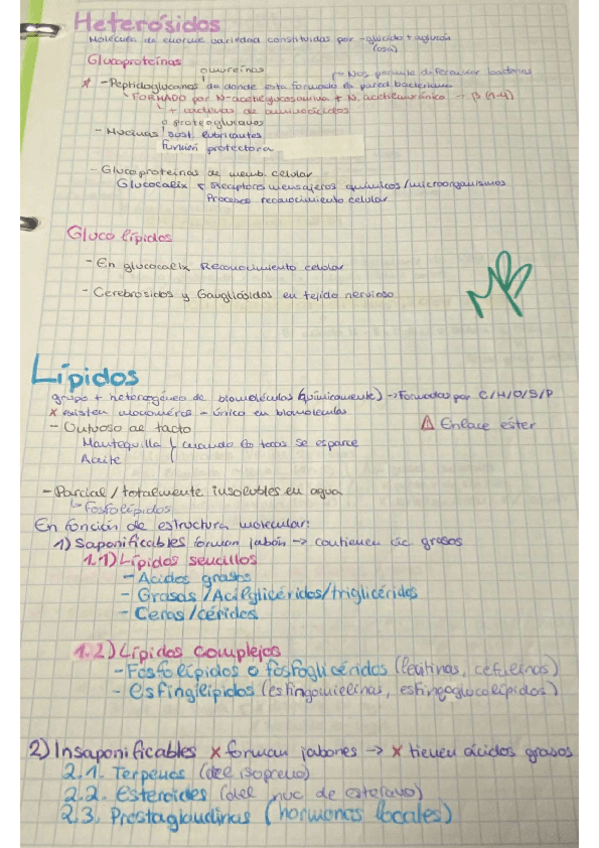 Heterósidos
Molécula de enorme variedad constituidas por - glúcido + aglucón
(osa)
Glucoproteínas
o mureínas
* - Peptidoglucanos de donde esta formado la pared bacteriana
→ Nos permite diferenciar bacterias
FORMADO por N-acetilglucosamina + N. acetilmurámico → β (1-4)
+ cadenas de aminoácidos
o proteoglucanos
- Mucinas / sust. lubricantes
función protectora
- Glucoproteínas de memb. celular
Glucocálix Receptores mensajeros químicos/microorganismos
Procesos reconocimiento celular
Gluco lípidos
- En glucocálix Reconocimiento celular
- Cerebrósidos y Gangliósidos en tejido nervioso
Lípidos
grupo + heterogéneo de biomoléculas (químicamente) → Formados por C/H/O/S/P
x existen monómeros - único en biomoléculas
- Untuoso al tacto
⚠ Enlace éster
Mantequilla } cuando lo tocas se esparce
Aceite
- Parcial / totalmente insolubles en agua
↳ Fosfolípidos
En función de estructura molecular:
1) Saponificables forman jabón → contienen ác grasos
1.1) Lípidos sencillos
- Ácidos grasos
- Grasas / Acilglicéridos/triglicéridos
- Ceras / céridos
1.2) Lípidos complejos
- Fosfolípidos o fosfoglicéridos (lecitinas, cefalinas)
- esfingilípidos (esfingomielinas, esfingoglucolípidos)
2) Insaponificables x forman jabones → x tienen ácidos grasos
2.1. Terpenos (del isopreno)
2.2. Esteroides (del nuc de esterano)
2.3. Prostaglandinas (hormonas locales)